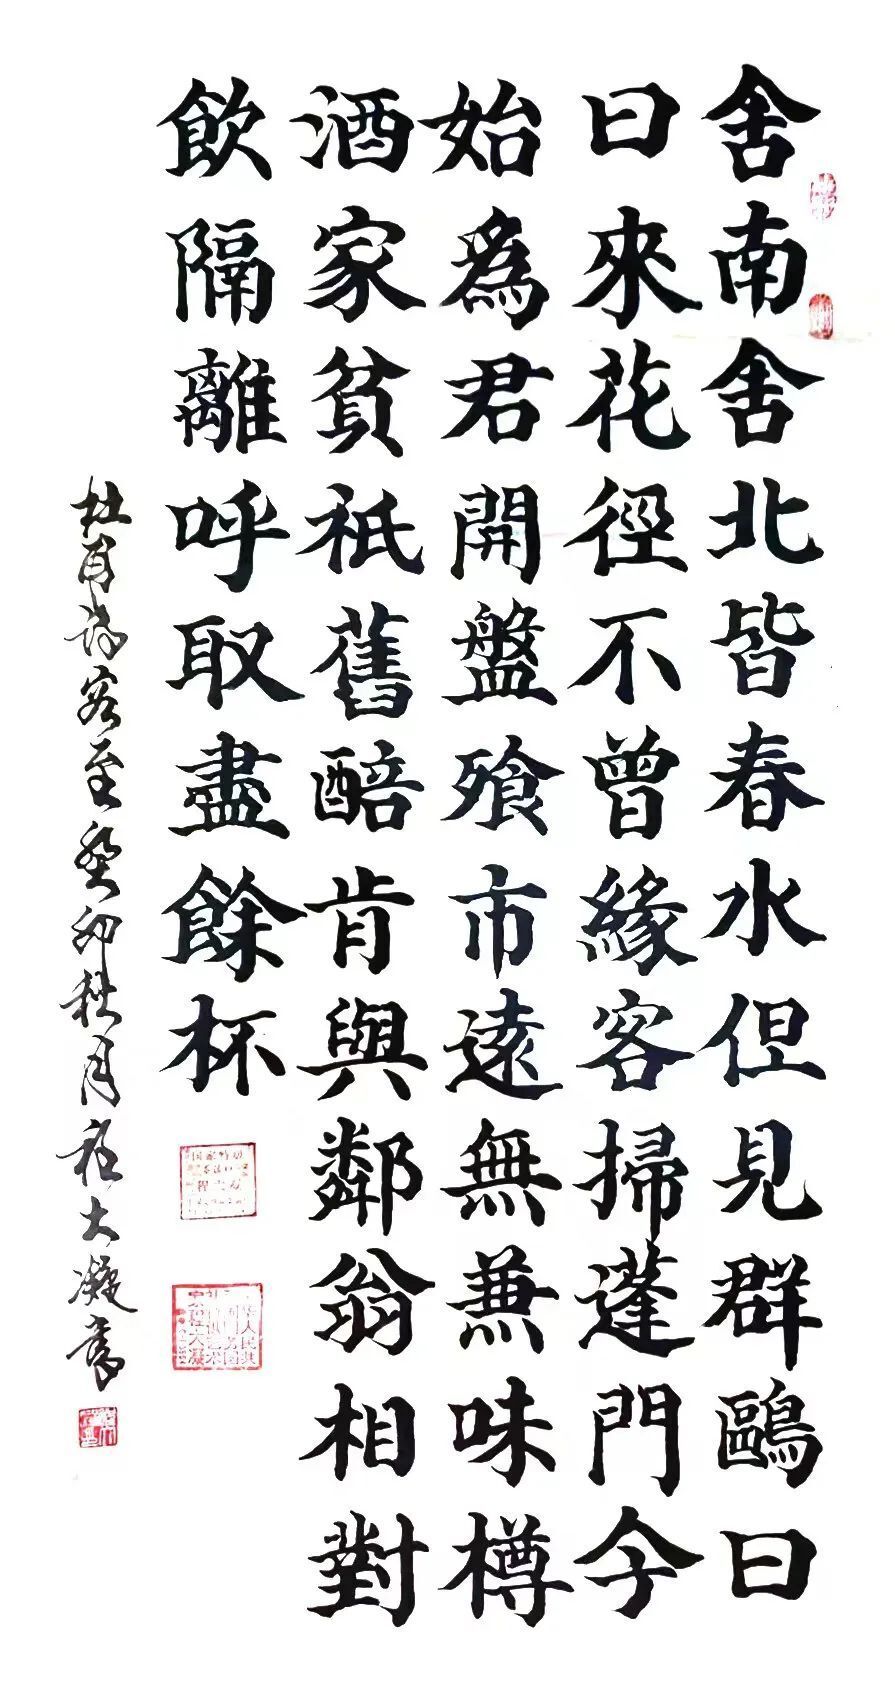 舍南舍北皆春水但見群鷗日
日來花徑不曾緣客掃蓬門今
始爲君開盤飱市遠無兼味樽
酒家貧祇舊醅肯與鄰翁相對
飲隔離呼取盡餘杯
杜甫詩客至癸卯秋月程大凝書